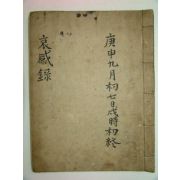 庚申九月初七日戌時初終
哀感錄